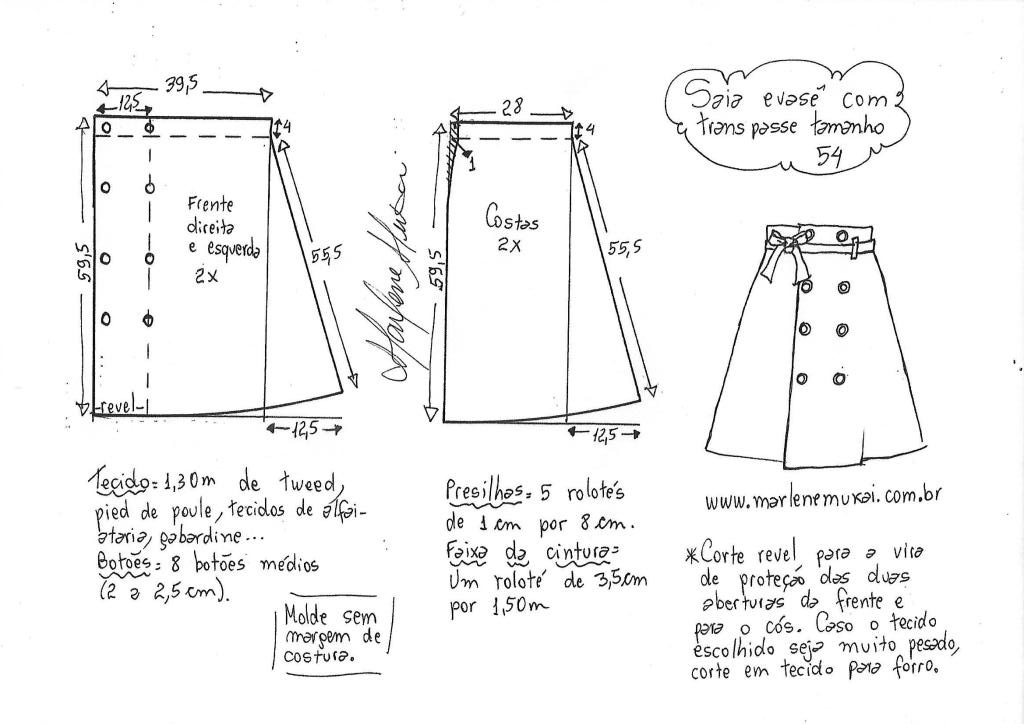 39,5
12,5
4
59,5
55,5
Frente
direita
e esquerda
2x
-revel-
12,5
28
4
1
59,5
55,5
Costas
2x
12,5
Marlene Mukai
Saia evasê com
transpasse tamanho
54
www.marlenemukai.com.br
Tecido = 1,30m de tweed,
pied de poule, tecidos de alfai-
ataria, gabardine...
Botões = 8 botões médios
(2 a 2,5cm).
Molde sem
margem de
costura.
Presilhas = 5 rolotés
de 1cm por 8cm.
Faixa da cintura =
Um roloté de 3,5cm
por 1,50m
*Corte revel para a vira
de proteção das duas
aberturas da frente e
para o cós. Caso o tecido
escolhido seja muito pesado,
corte em tecido para forro.